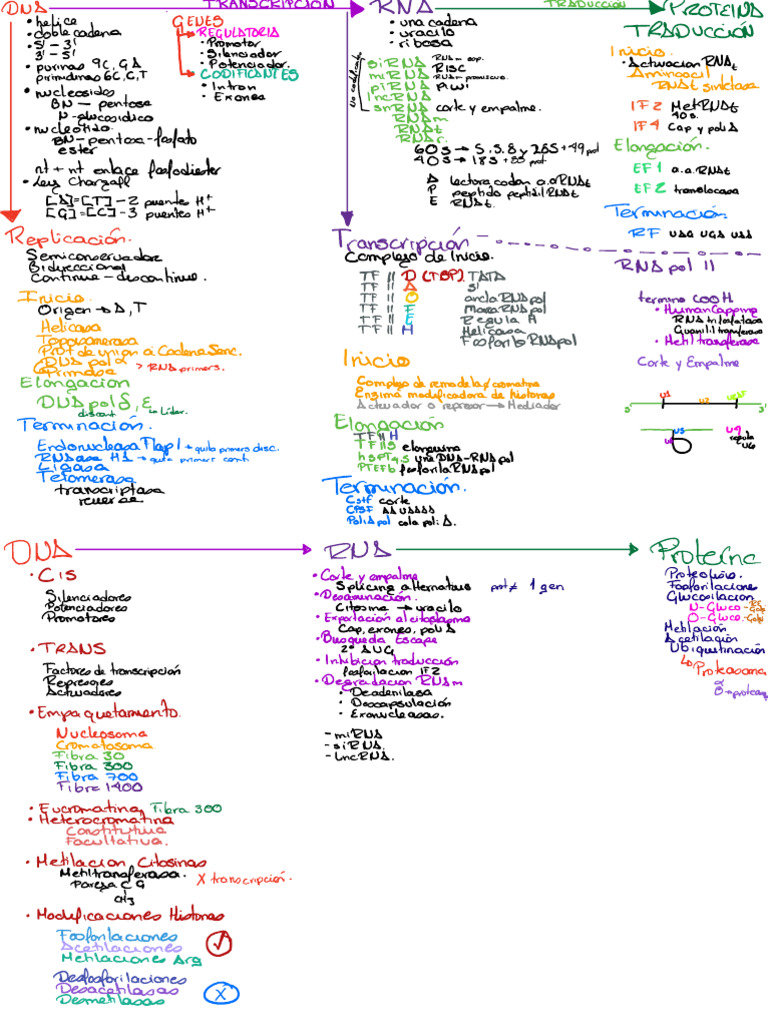 DNA TRANSCRIPCIÓN RNA TRADUCCIÓN PROTEINA
• helice
• doble cadena
• 5' – 3'
3' – 5'
• purinas 9C, G A
pirimidinas 6C, C, T
• nucleosidos
BN – pentosa
N-glucosidico
• nucleotido
BN – pentosa – fosfato
ester
nt + nt enlace fosfodiester
• Ley Chargaff
[A]=[T] – 2 puentes H+
[G]=[C] – 3 puentes H+
GENES
REGULATORIA
• Promotor
• Silenciador
• Potenciador
CODIFICANTES
• Intron
• Exones
• una cadena
• uracilo
• ribosa
no codificante
siRNA
miRNA RISC
piRNA PiWi
lncRNA
snRNA corte y empalme.
RNAm
RNAt
RNAr
60S → 5, 5.8 y 28S + 49 pol
40S → 18S + 33 prot
A lectora codon a.a RNAt
P peptido peptidil RNAt
E RNAt.
TRADUCCIÓN
Inicio
• Activacion RNAt
Aminoacil
RNAt sintetasa
IF2 MetRNAt
40s.
IF4 Cap y poli A
Elongación
EF1 a.a. RNAt
EF2 translocasa
Terminación
RF UAG UGA UAA
Replicación.
Semiconservador
Bidireccional
Continue – discontinue.
Inicio
Origen → A, T
Helicasa
Topoisomerasa
Prot de union a Cadena Senc.
DNA pol α
Primasa > RNA primers.
Elongacion
DNA pol δ, ε
discont Lider.
Terminación.
Endonucleasa Flap 1 → quita primers disc.
RNAasa H1 → quita primers cont
Ligasa
Telomerasa
transcriptasa
reversa
Transcripción
Complejo de Inicio.
TF II D (TBP) TATA
TF II A 5'
TF II ancla RNA pol
TF II F mueve RNA pol
TF II E Regula H
TF II H Helicasa
Fosforila RNA pol
Inicio
Complejo de remodela/cromatina
Enzima modificadora de histonas
Activador o represor → Mediador
Elongación
TF II H
TF II S elonguina
hSPT4,5 une DNA-RNA pol
PTEFb fosforila RNA pol
Terminación.
Cstf corte
CPSF AAUAAAA
PoliA pol cola poli A.
RNA pol II
termino COOH
• Human Capping
RNA trifosfatasa
Guanilil transferasa
• Metil transferasa
Corte y Empalme
5' U1 U2 3'
U5
U6
U4
regula
U6
DNA RNA Proteína
• CIS
Silenciadores
Potenciadores
Promotores
• TRANS
Factores de transcripción
Represores
Activadores
• Empaquetamiento.
Nucleosoma
Cromatosoma
Fibra 30
Fibra 300
Fibra 700
Fibra 1400
• Eucromatina, Fibra 300
• Heterocromatina
Constitutiva
Facultativa.
• Metilacion Citosinas
Metiltransferasa. X transcripción.
Pareja C G
CH3
• Modificaciones Histonas
Fosforilaciones
Acetilaciones
Metilaciones Arg
Desfosforilaciones
Desacetilasas
Desmetilasas
X
• Corte y empalme
Splicing alternativo prot ≠ 1 gen
• Desaminación.
Citosina → uracilo
• Exportación al citoplasma
Cap, exones, poli A
• Busqueda Escape
2° AUG
• Inhibicion traducción
fosforilacion IF2
• Degradacion RNAm
• Deadenilasa
• Descapsulación
• Exonucleasas.
– miRNA
– siRNA.
– lncRNA.
Proteolisis.
Fosforilaciones
Glucosilacion
N-Gluco. – RE Golgi
O-Gluco. – Golgi
Metilación
Acetilación
Ubiquitinación
↳ Proteasoma